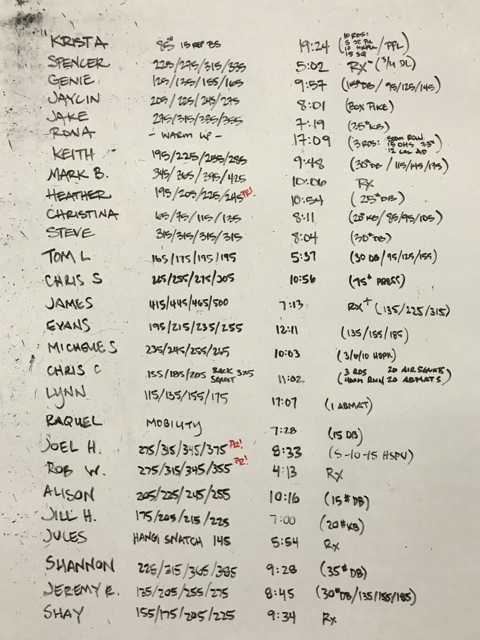 KRISTA 85# 15 REP BS 19:24 (10 RDS: 10 HRPU 15 SQ / PPL)
SPENCER 225/275/315/335 5:02 RX- (3/4 DL)
GENIE 125/135/155/165 9:57 (15#DB/ 95/125/145)
JAYLIN 205/225/245/275 8:01 (BOX PIKE)
JAKE 275/315/335/355 7:19 (25#KB)
RONA - WARM UP - 17:09 (3 RDS: ROW 15 OHS 35# 12 CAL AD)
KEITH 195/225/255/285 9:48 (30#DB / 115/145/175)
MARK B. 345/365/395/425 10:06 RX
HEATHER 195/205/225/245 PR! 10:54 (25#DB)
CHRISTINA 65/75/115/135 8:11 (20#KB/85/95/105)
STEVE 315/315/315/315 8:04 (30#DB)
TOM L 165/175/195/195 5:37 (30 DB/95/125/155)
CHRIS S 225/255/275/305 10:56 (75# PRESS)
JAMES 415/445/465/500 7:13 RX+ (135/225/315)
EVANS 195/215/235/255 12:11 (135/155/185)
MICHELLE S 235/245/255/265 10:03 (3/6/10 HSPU)
CHRIS C 155/185/205 BACK SQUAT 3x5 11:02 (3 RDS 400M RUN/ 20 AIR SQUATS 20 ABMATS)
LYNN 115/135/155/175 17:07 (1 ABMAT)
RAQUEL MOBILITY 7:28 (15 DB)
JOEL H. 275/315/345/375 PR! 8:33 (5-10-15 HSPU)
ROB W. 275/315/345/355 PR! 4:13 Rx
ALISON 205/225/245/255 10:16 (15#DB)
JILL H. 175/205/215/225 7:00 (20#KB)
JULES HANG SNATCH 145 5:54 Rx
SHANNON 225/315/365/385 9:28 (35#DB)
JEREMY R. 135/205/255/275 8:45 (30#DB/135/155/185)
SHAY 155/175/205/225 9:34 Rx